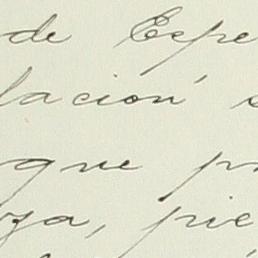 de Espe
lación s
que p
za, pie